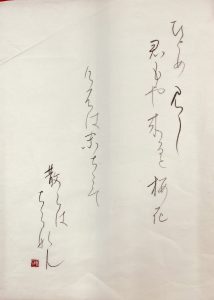 ひとめ見し
君もや来ると桜花
けふはまちみて
散らは
ちらなん